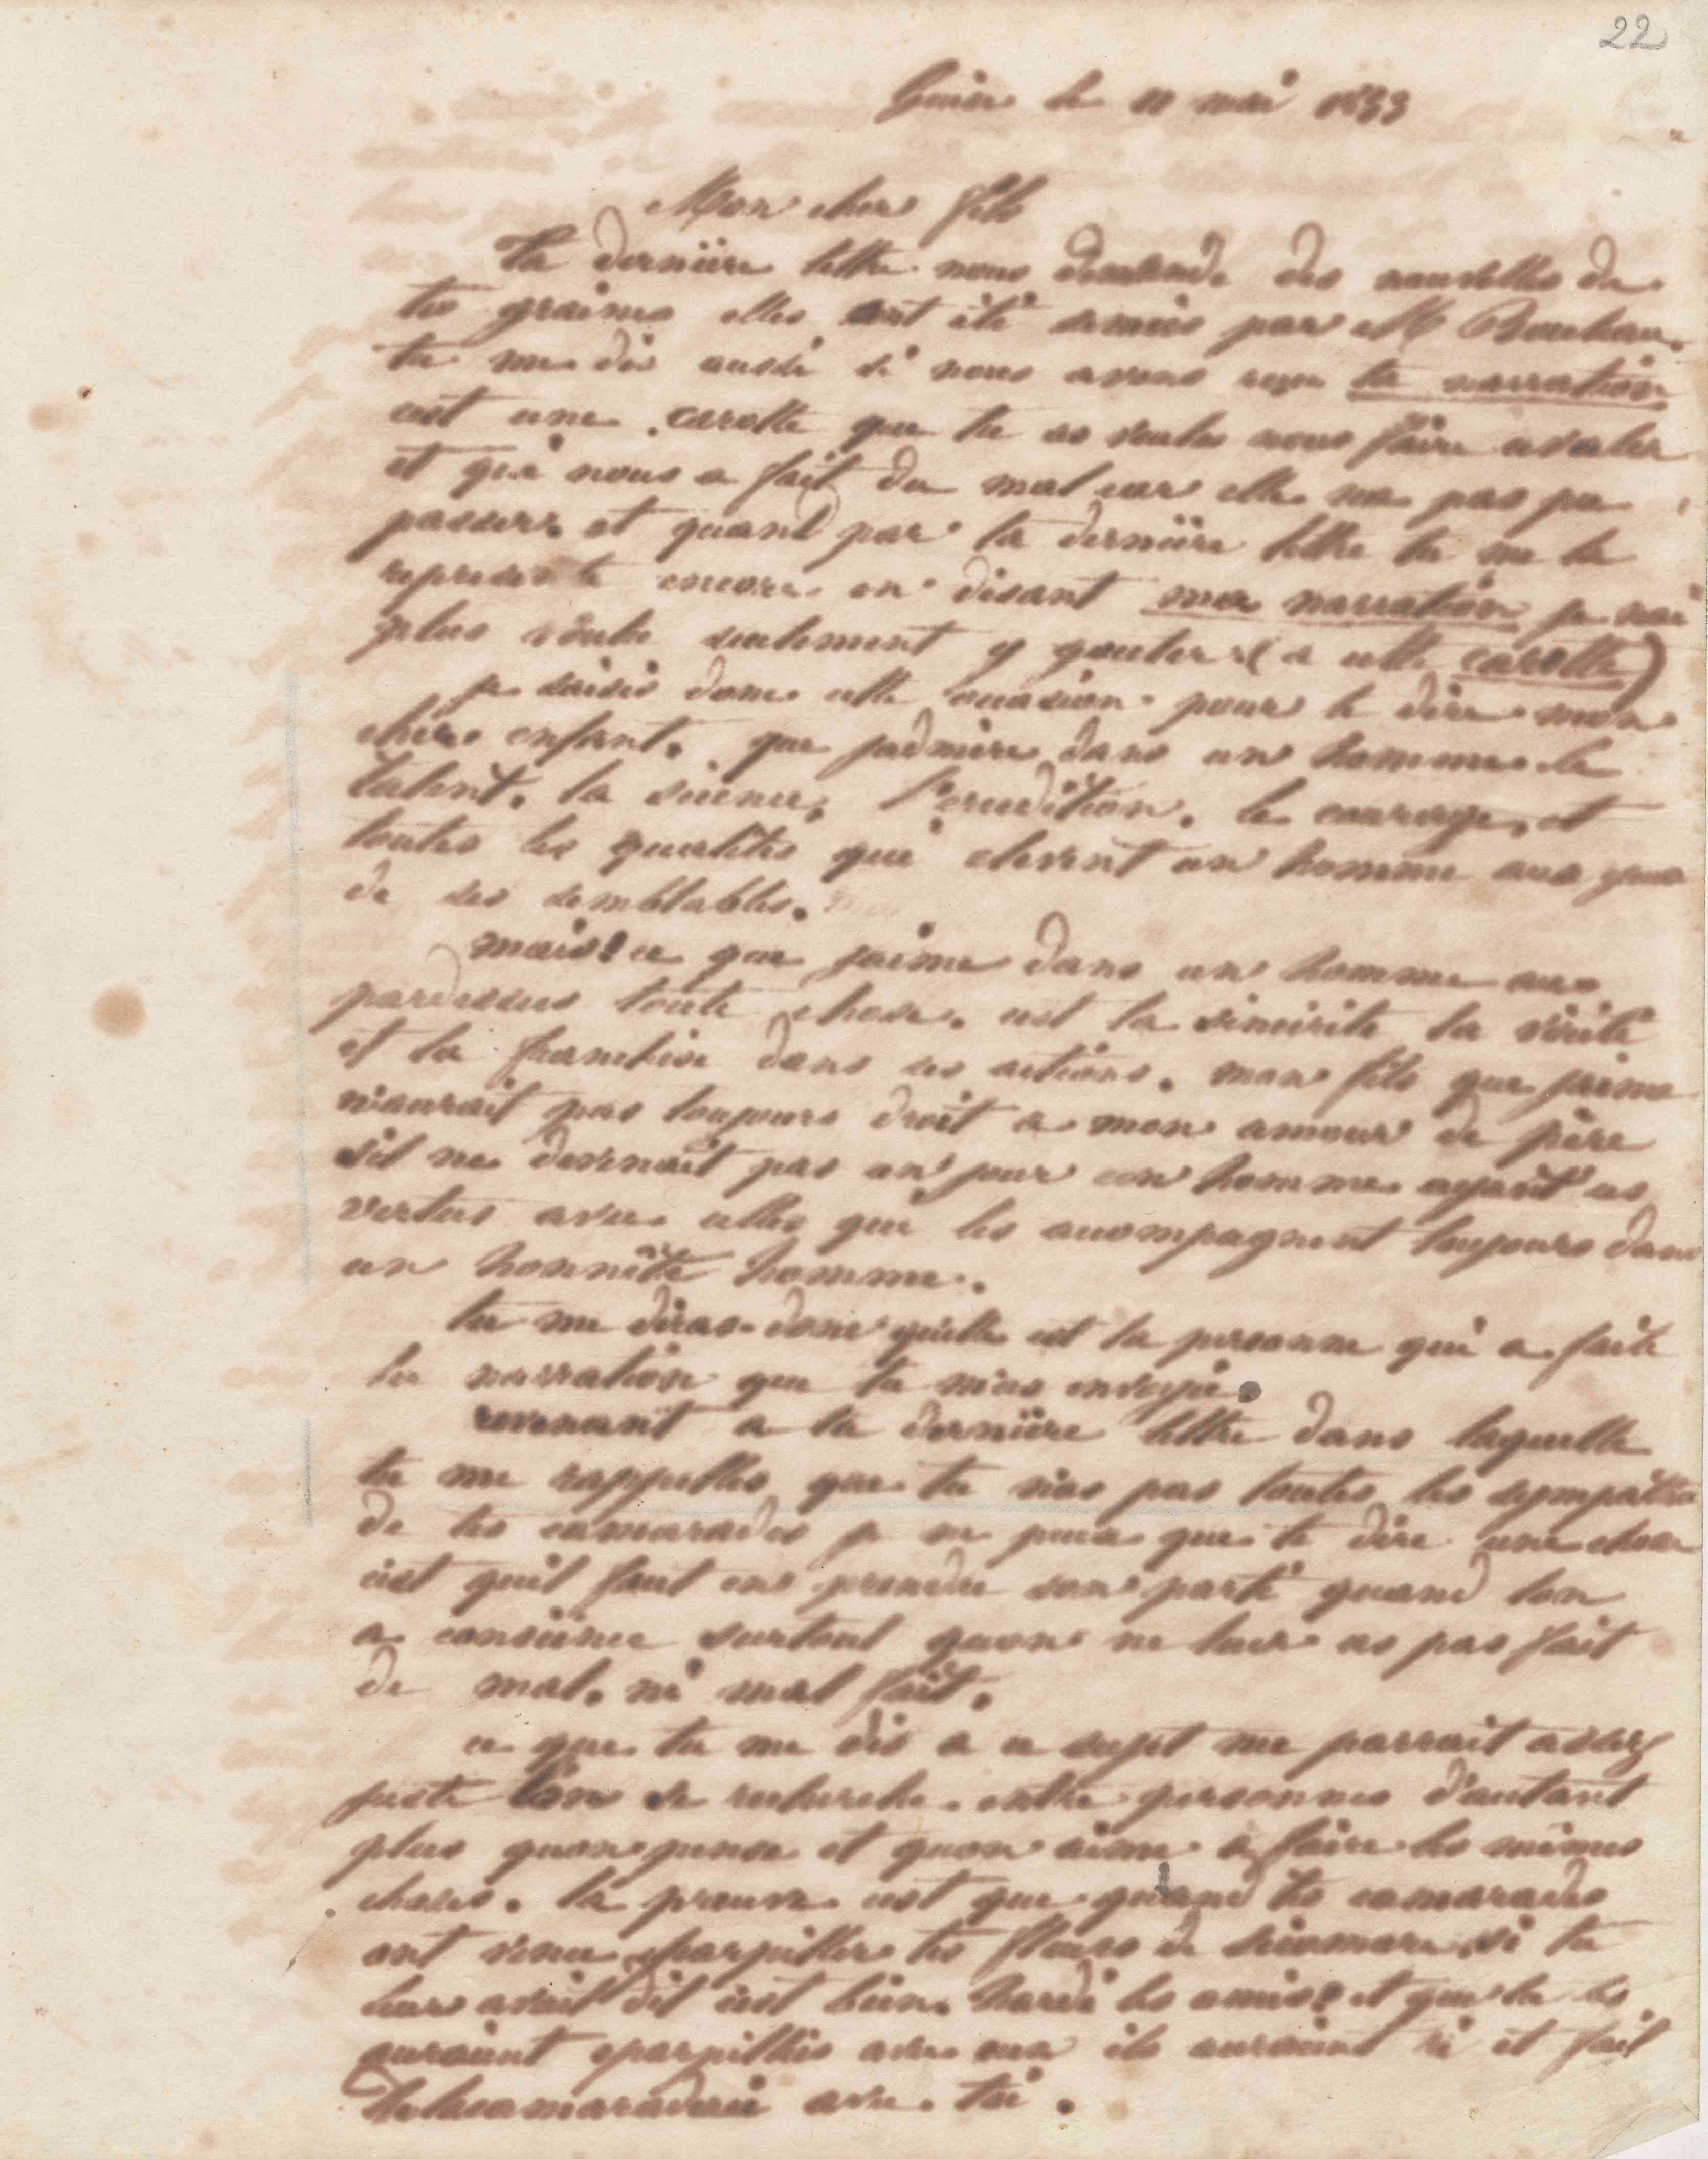 22
le 11 mai 1853
Mon cher fils
ta derniere lettre nous demende des nouvelles de
tes graines elles ont été semées par M
tu me dis aussi si nous avons reçu ta narration
cest une carotte que tu as voulu nous faire avaler
et qui nous a fait du mal car elle na pas pu
passer. et quand par ta derniere lettre tu me la
represente encore en disant ma narration je nai
plus voulu seulement y gouter (a cette carotte)
je saisis donc cette occasion pour te dire mon
cher enfant. que jadmire dans un homme le
talent. la science, l'erudition. le courage, et
toutes les qualités qui elevent un homme aux yeux
de ses semblables.
mais! ce que jaime dans un homme
pardessus toute chose. cest la sincerite la vérité
et la franchise dans ses actions. mon fils que jaime
n'aurait pas toujours droit a mon amour de père
sil ne devenait pas un jour un homme ayant ces
vertus avec celles qui les accompagnent toujours dans
un honnête homme.
tu me diras donc quelle est la personne qui a faite
la narration que tu m'as envoyée.
revenant a ta derniere lettre dans laquelle
tu me rappelles que tu n'as pas toutes les sympathies
de tes camarades je ne peux que te dire une chose
cest quil faut en prendre son parti quand lon
a conscience surtout quon ne leur as pas fait
de mal. ni mal fait.
ce que tu me dis a ce sujet me parrait assez
juste lon se recherche entre personnes d'autant
plus quon pense et quon aime a faire les mêmes
choses. la preuve cest que quand tes camarades
ont venu eparpiller tes fleurs de si tu
leur avait dit cest bien. hardi les amis! et que tu les
auraient eparpillés avec eux ils auraient ri et fait
de la camaraderie avec toi.